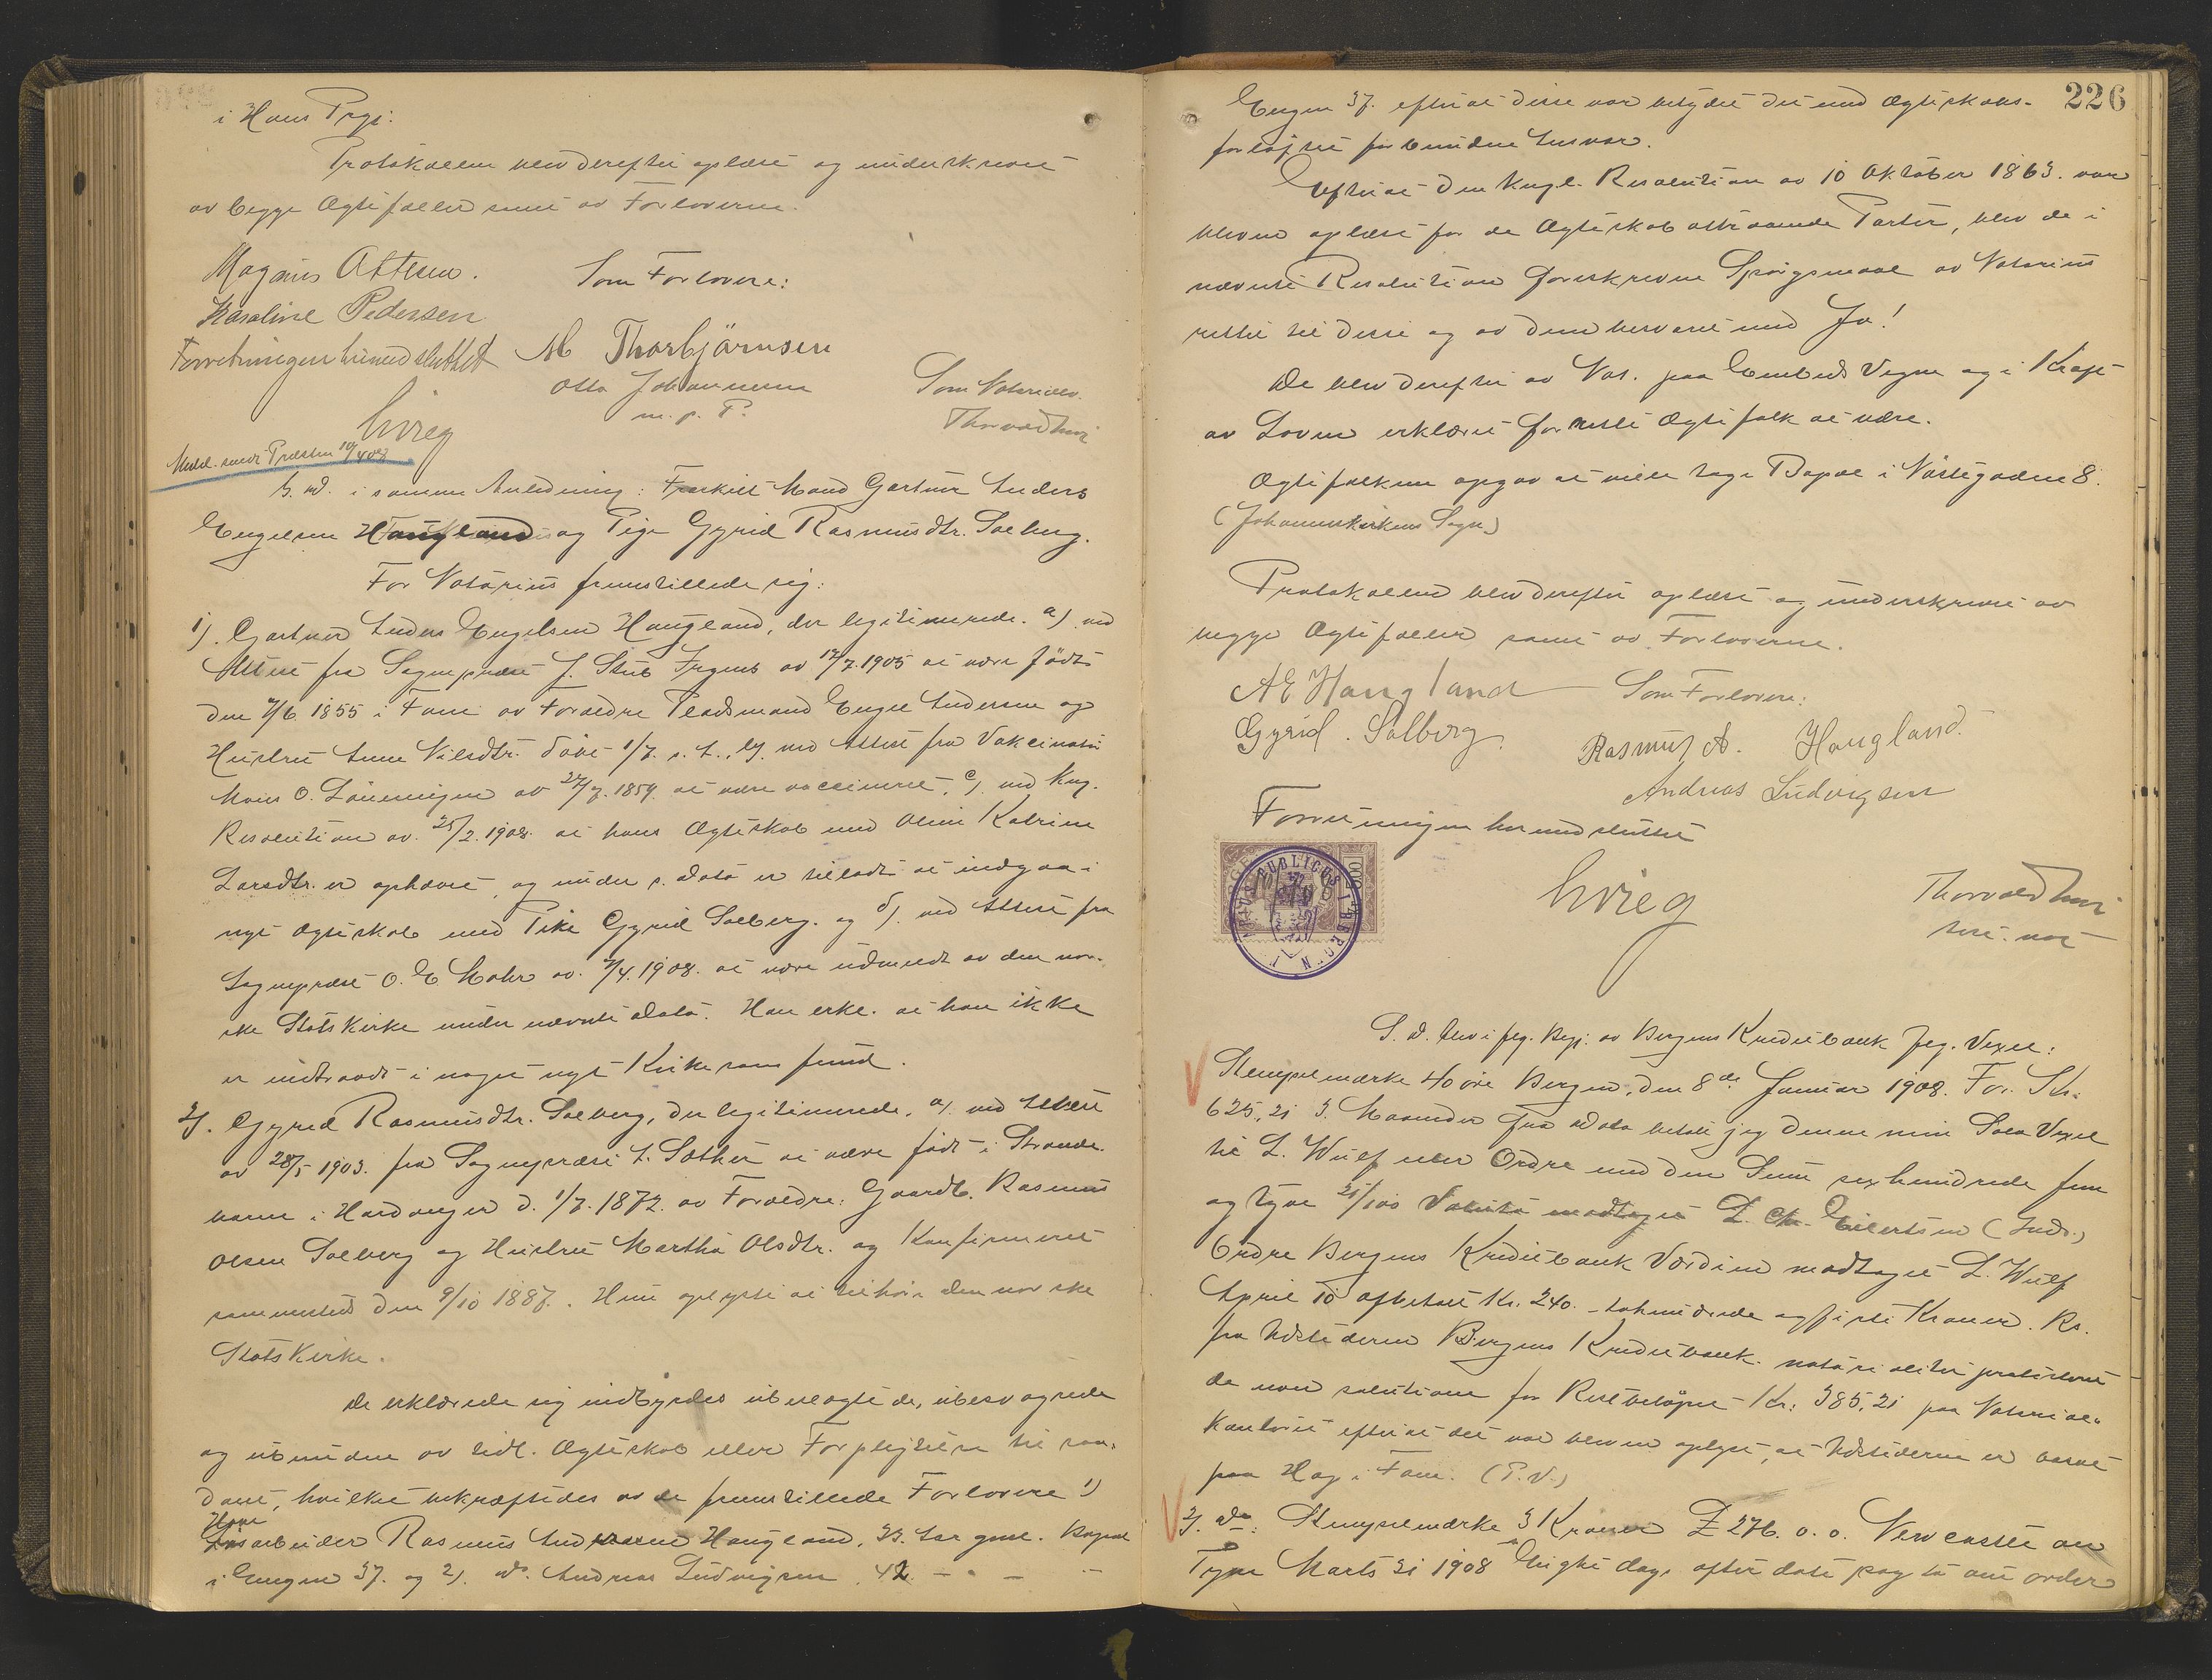 i Hans Prgj:
Protokollen blev derefter oplæst og underskrevet
av begge Ægtefæller samt av Forloverne.
Magnus Ottesen. Som Forlovere:
Karoline Pedersen
Forretningen hermed sluttet M Thorbjörnsen
Otto Johannesen Som Notarialv.
m. p. P. Thorvald
Krieg
Medd. sendt Præsten 10/4 08
S. D. i samme Anledning: Fraskilt Mand Gartner Anders
Engelsen Haugland og Pige Gyrid Rasmusdtr. Solberg.
For Notarius fremstillede sig:
1). Gartner Anders Engelsen Haugland, der legitimerede. a) ved
Attest fra Sogneprest J. Stub Irgens av 12/7. 1905 at være født
den /6 1855 i Fane av Forældre Pladsmand Engel Andersen og
Hustru Anne Nilsdtr. døbt 1/7. s. A., b). ved Attest fra Vakcinatør
Mons O. Lönningen av 27/7. 1859 at være vaccineret, c). ved Kng.
Resolution av. 25/2. 1908. at hans Ægteskab med Oline Katrine
Larsdtr. er ophævet, og under s. Dato er tilladt at indgaa i
nyt Ægteskab med Pike Gyrid Solberg. og d). ved Attest fra
Sogneprest O. E Mohr av. /4. 1908. at være udmeldt av den nor-
ske Statskirke under nævnte Dato. Han erkl. at han ikke
er indtraadt i noget nyt Kirkesamfund.
2). Gyrid Rasmusdtr. Solberg, der legitimerede, a) ved Attest
av 28/5 1903. fra Sogneprest A. Sæther at være født i Strande-
barm i Hardanger d. 1/7. 1872. av Forældre: Gaardb. Rasmus
Olsen Solberg og Hustru Martha Olsdtr. og Konfirmeret
sammesteds den 9/10 1887. Hun oplyste at tilhøre den norske
Statskirke.
De erklærede sig indbyrdes ubeslægtede, ubesvogrede
og ubundne av tidl. Ægteskab eller Forpligtelse til saa-
dant, hvilket bekræftedes av de fremstillede Forlovere 1)
Havearbeider Rasmus Andersen Haugland, 33. Aar gml. Bopæl
i Engen 37. og 2). Do. Andreas Ludvigsen, 42 - " - -
226
Engen 37. efterat disse var betydet det med Ægteskabs-
forløftet forbundne Ansvar.
Efterat den Kngl. Resolution av 10 Oktober 1863. var
bleven oplæst for de Ægteskab attraaende Parter, blev de i
nævnte Resolution foreskrevne Spørgsmaal av Notarius
rettet til disse og av dem besvaret med Ja!
De blev derefter av Not. paa Embeds Vegne og i Kraft
av Loven erklæret for rette Ægtefolk at være.
Ægtefolkene opgav at ville tage Bopæl i Nøstegaden 8.
(Johanneskirkens Sogn)
Protokollen blev derefter oplæst og underskrevet av
begge Ægtefæller samt av Forloverne.
AE Haugland Som Forlovere:
Gyrid. Solberg. Rasmus A. Haugland.
Andreas Ludvigsen
Forretningen hermed sluttet
NOTARIUS PUBLICUS I BERGEN
Krieg Thorvald
S. D. blev i flg. Begj. av Bergens Kreditbank flg. Vexel:
Stempelmærke 40 öre Bergen, den 8de Januar 1908. For. Kr.
625,21 3. Maaneder fra Dato betale jeg denne min Sola Vexel
til L. Wulf eller Ordre med den Sum sexhundrede fem
og tyve 21/100 Valuta modtaget L. Chr. Eilertsen (Inds.)
Ordre Bergens Kreditbank Værdien modtaget L. Wulf
April 10 afbetalt Kr. 240. - tohundrede og firti Kroner. Ks.
fra Udstederen Bergens Kreditbank. notarialiter protesteret
de non solutione for Restbeløpet Kr: 385,21 paa Notarial-
kontoret efterat det var bleven oplyst, at Udstederen er bosat
paa Hop i Fane. (P.V.)
2). Do: Stempelmærke 3 Kroner £ 276. o. o. Newcastle on
Tyne Marts 31 1908 Eight days after date pay to our order